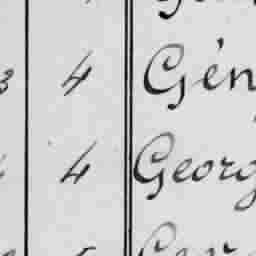 3 4 Gén
4 Georg